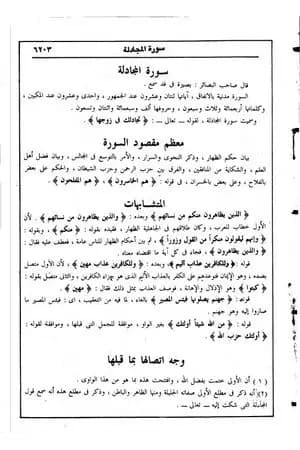 سورة المجادلة
٦٢٠٣
سورة المجادلة
قال صاحب البصائر : بصيرة في قد سمع .
السورة مدنية بالاتفاق ، آياتها ثنتان وعشرون عند الجمهور ، وإحدى وعشرون عند المكيين ،
وكلماتها أربعمائة وثلاث وسبعون ، وحروفها ألف وسبعمائة واثنان وتسعون .
وسميت سورة المجادلة ، لقوله ـ تعالى ـ : ﴿ تجادلك في زوجها ﴾ .
معظم مقصود السورة
بيان حكم الظهار ، وذكر النجوى والسرار ، والأمر بالتوسع في المجالس ، وبيان فضل أهل
العلم ، والشكاية من المنافقين ، والفرق بين حزب الرحمن وحزب الشيطان ، والحكم على بعض
بالفلاح ، وعلى بعض بالخسران ، في قوله : ﴿ هم الخاسرون ﴾ ، ﴿ هم المفلحون ﴾ .
المتشابهات
﴿ الذين يظاهرون منكم من نسائهم ﴾ وبعده : ﴿ والذين يظاهرون من نسائهم ﴾ . لأن
الأول خطاب للعرب ، وكان طلاقهم في الجاهلية الظهار ، فقيده بقوله : ﴿ منكم ﴾ ، وبقوله :
﴿ وإنهم ليقولون منكراً من القول وزوراً ﴾ ، ثم بين أحكام الظهار للناس عامة ، فعطف عليه فقال :
﴿ والذين يظاهرون ﴾ ، فجاء في كل آية ما اقتضاه معناه .
قوله : ﴿ وللكافرين عذاب أليم ﴾ ، وبعده : ﴿ وللكافرين عذاب مهين ﴾ ، لأن الأول متصل
بضده ، وهو الإيمان فتوعدهم على الكفر بالعذاب الأليم الذي هو جزاء الكافرين ، والثاني متصل بقوله :
﴿ كبتوا ﴾ وهو الإذلال والإهانة ، فوصف العذاب بمثل ذلك فقال : ﴿ مهين ﴾ .
قوله : ﴿ جهنم يصلونها فبئس المصير ﴾ بالفاء ، لما فيه من التعقيب ، أي : فبئس المصير ما
صاروا إليه وهو جهنم .
قوله : ﴿ من الله شيئاً أولئك ﴾ بغير الواو ، موافقة للجمل التي قبلها ، وموافقة لقوله :
﴿ أولئك حزب الله ﴾ .
وجه اتصالها بما قبلها
( ١ ) أن الأولى ختمت بفضل الله ، وافتتحت هذه بما هو من هذا الوادى .
(٢) أنه ذكر في مطلع الأولى صفاته الجليلة ومنها الظاهر والباطن ، وذكر في مطلع هذه أنه سمع قول
المجادلة التي شكت إليه ـ تعالى ـ .